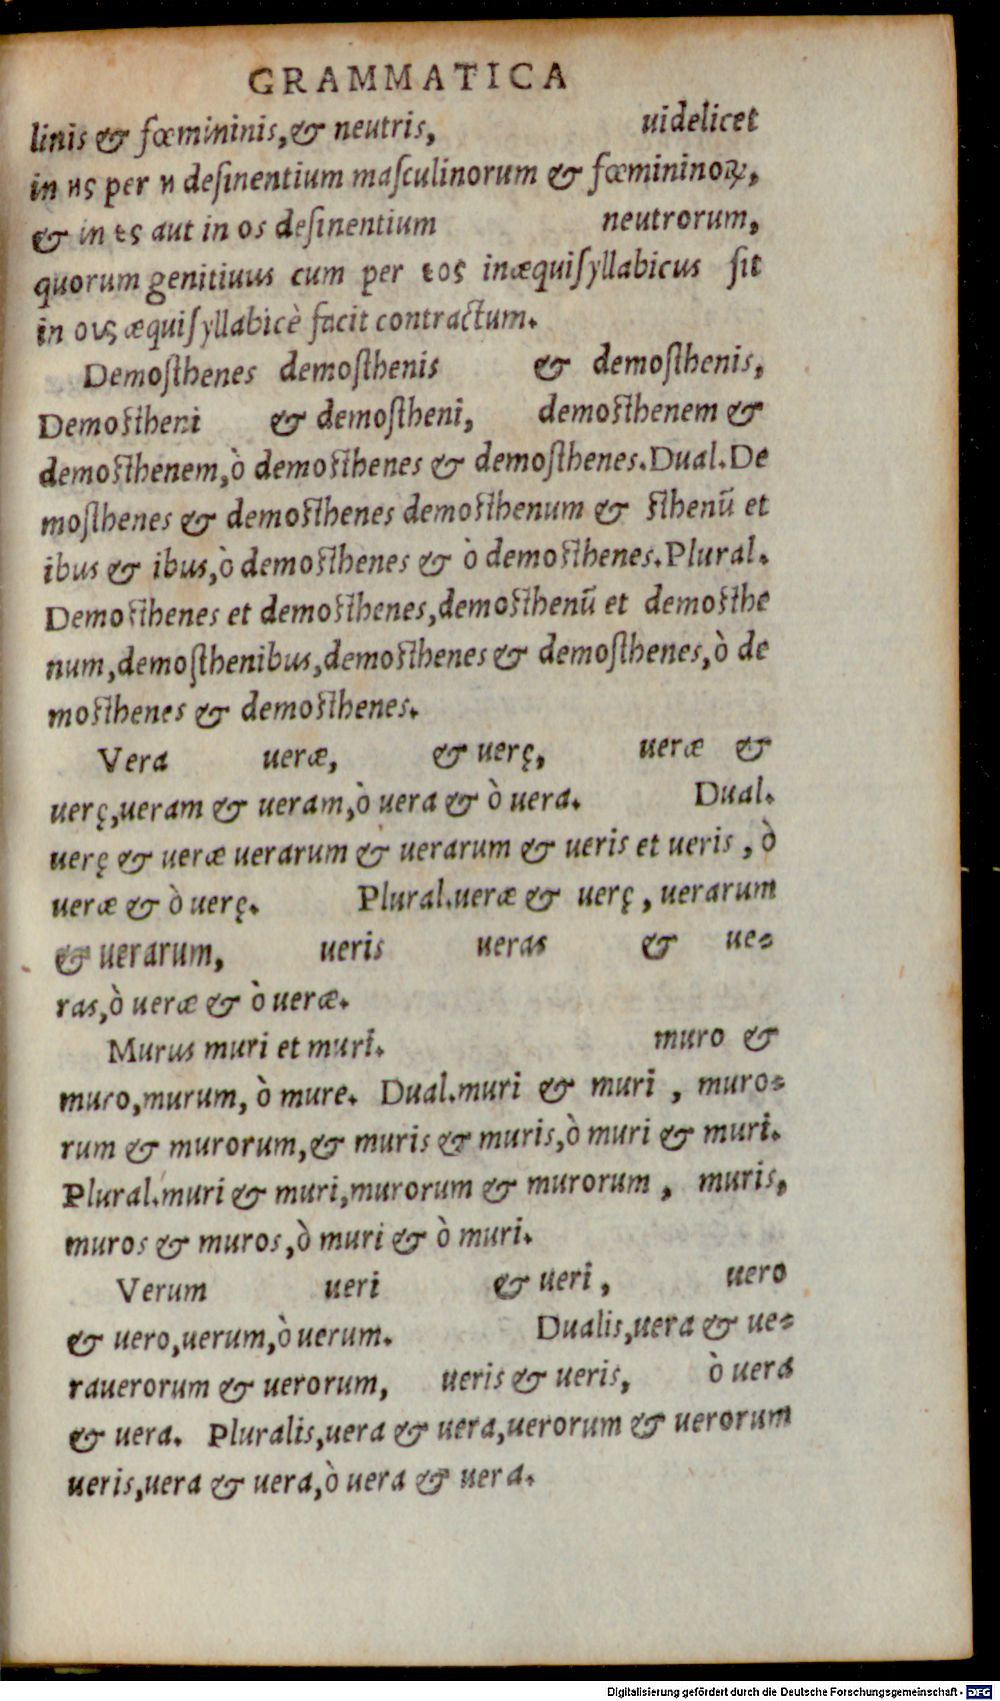 GRAMMATICA
linis & fœmininis,& neutris, uidelicet
in ης per η deſinentium maſculinorum & fœmininoꝝ,
& in ες aut in os deſinentium neutrorum,
quorum genitiuus cum per εος inæquiſyllabicus ſit
in ους æquiſyllabicè facit contractum.
Demoſthenes demoſthenis & demoſthenis,
Demoſtheni & demoſtheni, demoſthenem &
demoſthenem,ò demoſthenes & demoſthenes.Dual.De
moſthenes & demoſthenes demoſthenum & ſthenū et
ibus & ibus,ò demoſthenes & ò demoſthenes.Plural.
Demoſthenes et demoſthenes,demoſthenū et demoſthe
num,demoſthenibus,demoſthenes & demoſthenes,ò de
moſthenes & demoſthenes.
Vera ueræ, & uerę, ueræ &
uerę,ueram & ueram,ò uera & ò uera. Dual.
uerę & ueræ uerarum & uerarum & ueris et ueris , ò
ueræ & ò uerę. Plural.ueræ & uerę , uerarum
& uerarum, ueris ueras & ue=
ras,ò ueræ & ò ueræ.
Murus muri et muri. muro &
muro,murum, ò mure. Dual.muri & muri , muro=
rum & murorum,& muris & muris,ò muri & muri.
Plural.muri & muri,murorum & murorum , muris,
muros & muros,ò muri & ò muri.
Verum ueri & ueri , uero
& uero,uerum,ò uerum. Dualis,uera & ue=
rauerorum & uerorum, ueris & ueris, ò uera
& uera. Pluralis,uera & uera,uerorum & uerorum
ueris,uera & uera,ò uera & uera.
Digitalisierung gefördert durch die Deutsche Forschungsgemeinschaft - DFG